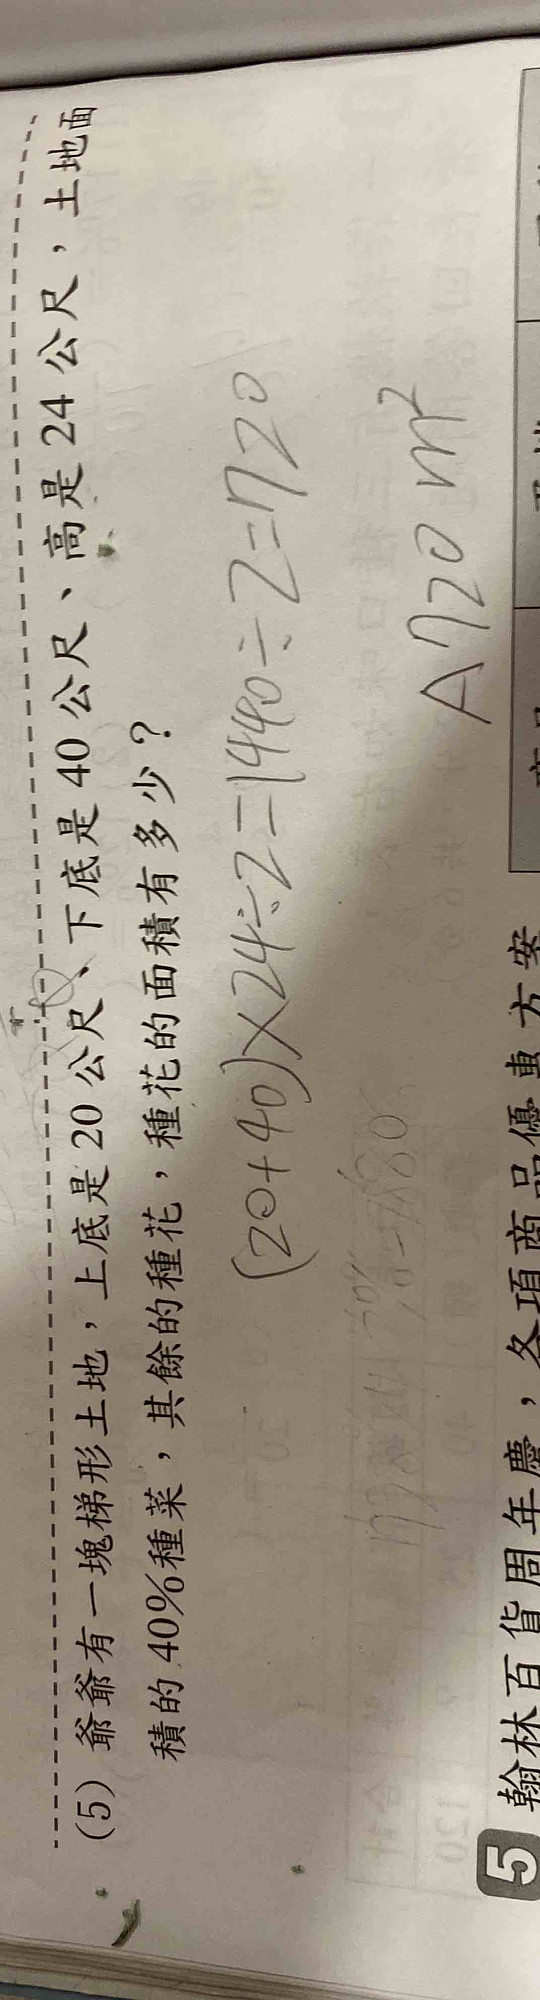 (5) 爺爺有一塊梯形土地，上底是20公尺、下底是40公尺、高是24公尺，土地面
積的40%種菜，其餘的種花，種花的面積有多少？
(20+40)×24÷2=1440÷2=720
A720 m²
5 翰林百貨周年慶，各項商品優惠方案